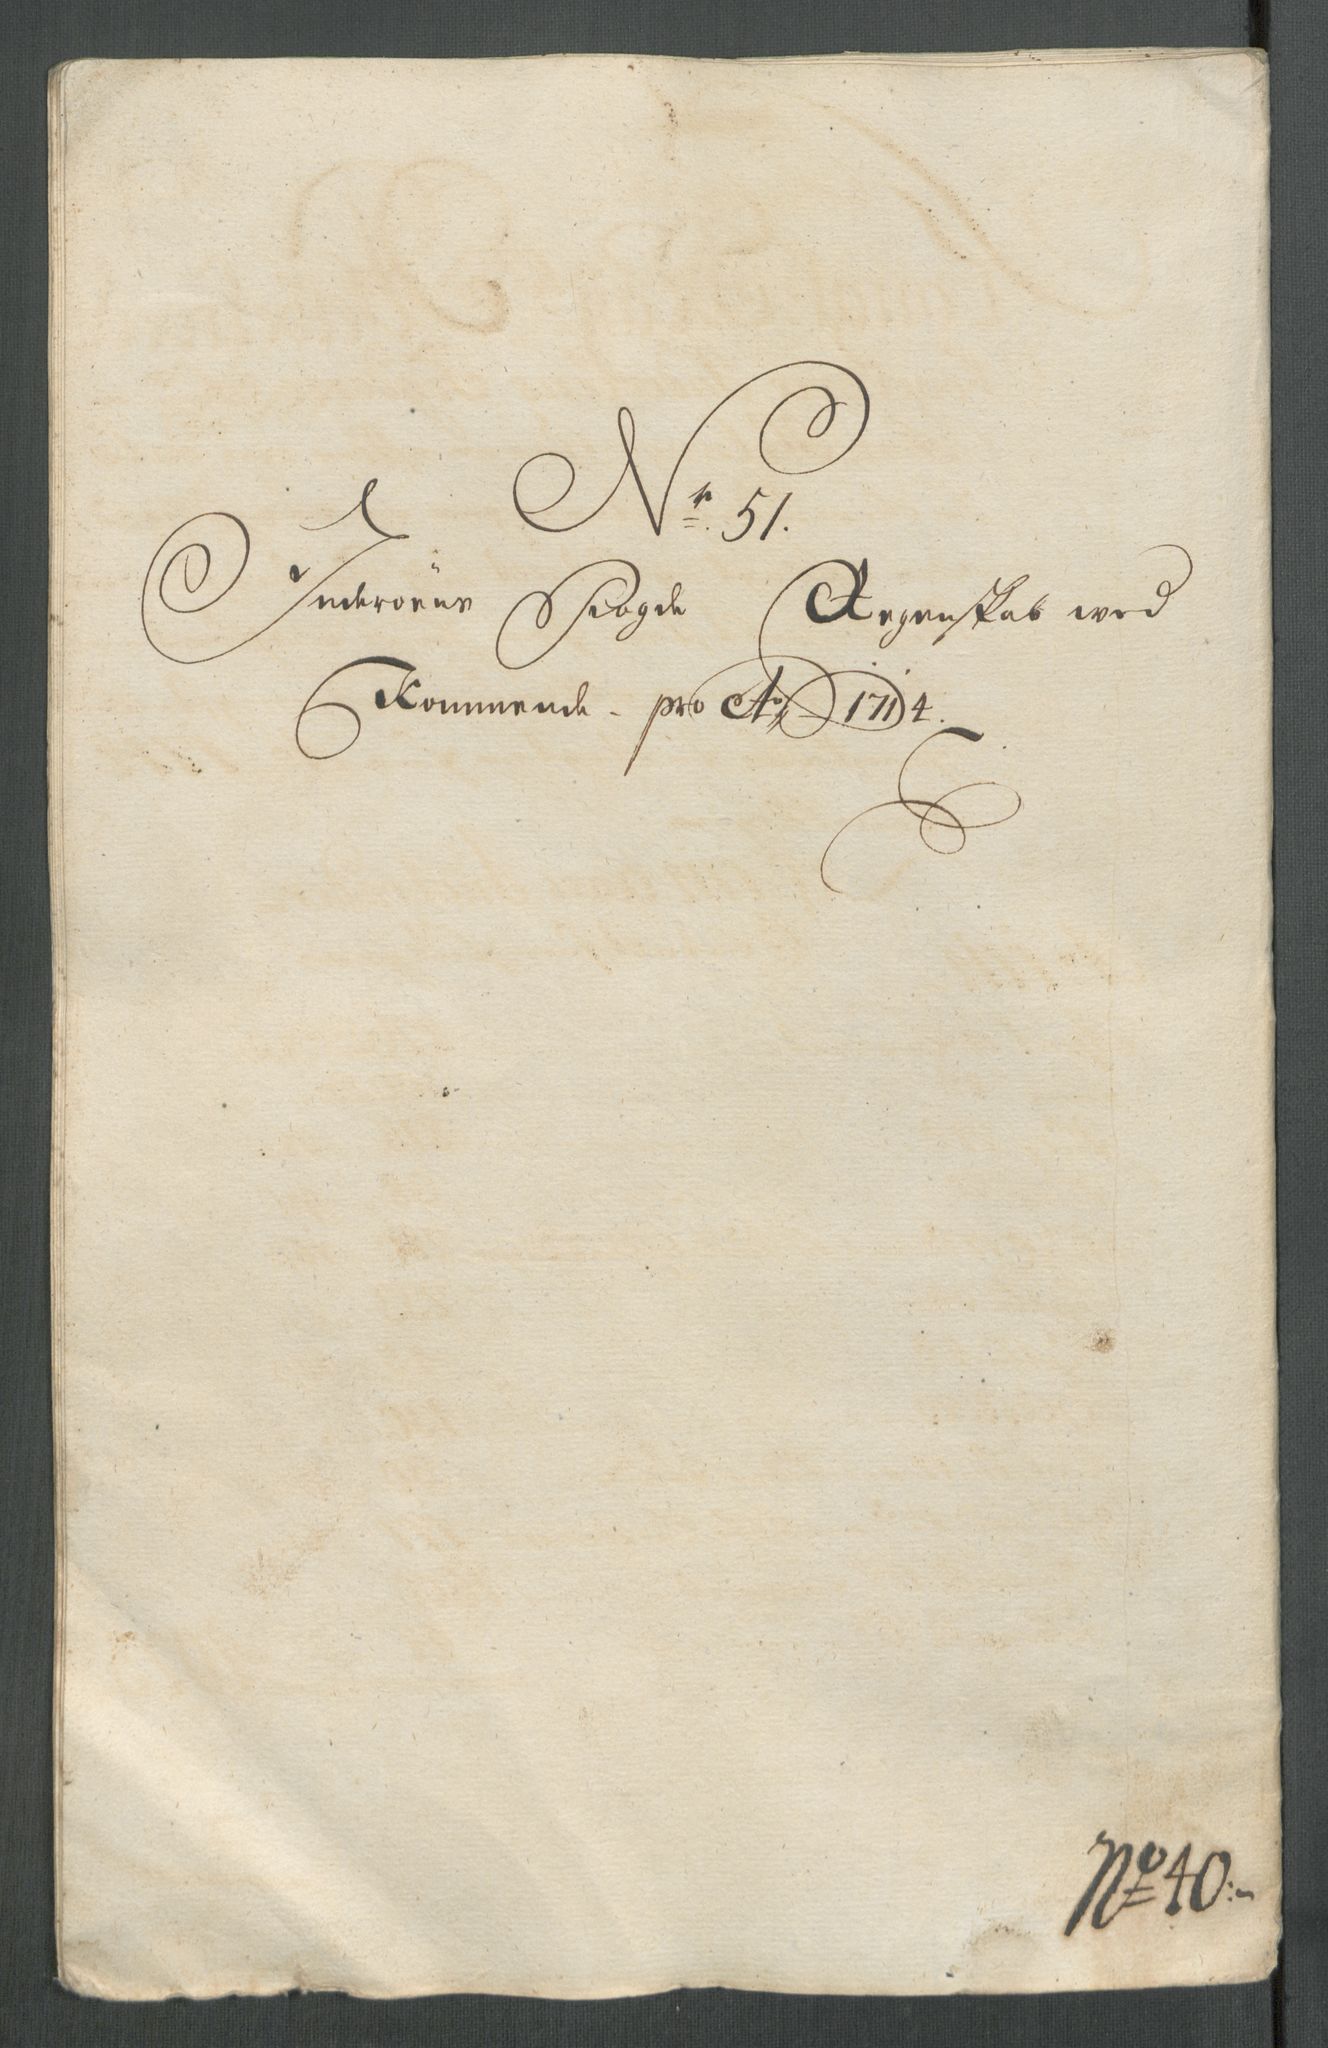 Nr. 51.
Inderøens Fiogde Regenskab wed
Kommende - pro Ao 1714.
No 40:~